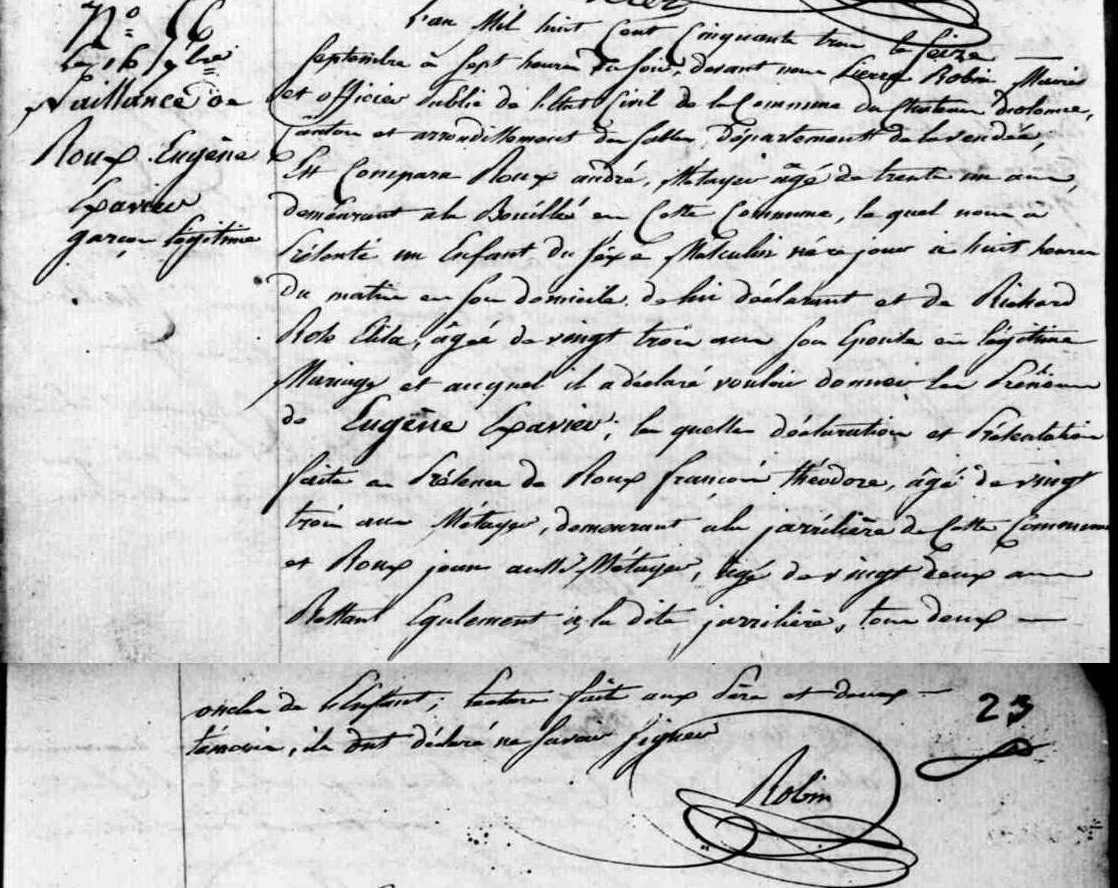 N° 56
le 16 7bre
Naissance de
Roux Eugène
Xavier
garçon légitime
L'an Mil huit Cent Cinquante trois le Seize
Septembre à Sept heures du Soir, devant nous Pierre Robin Maire
et officier Public de l'Etat Civil de la Commune du Chateau d'olonne,
Canton et arrondissement des Sables, département de la vendée,
Est Comparu Roux andré, Métayer âgé de trente un ans,
demeurant à la Bouillé en Cette Commune, le quel nous a
Présenté un Enfant du Séxe Masculin né ce jour à huit heures
du matin en son domicile de lui déclarant et de Richard
Rose Elisa, âgée de vingt trois ans son Epouse en légitime
Mariage et auquel il a déclaré vouloir donner les Prénoms
de Eugène Xavier, les quelles déclaration et Présentation
faite en Présence de Roux françois théodore, âgé de vingt
trois ans Métayer, demeurant à la jarrilière de Cette Commune
et Roux jean aussi Métayer, âgé de vingt deux ans
Restant Egalement à la dite jarrilière, tous deux
oncles de l'Enfant; lecture faite aux Père et deux
témoins, ils ont déclaré ne Savoir Signer
23
Robin